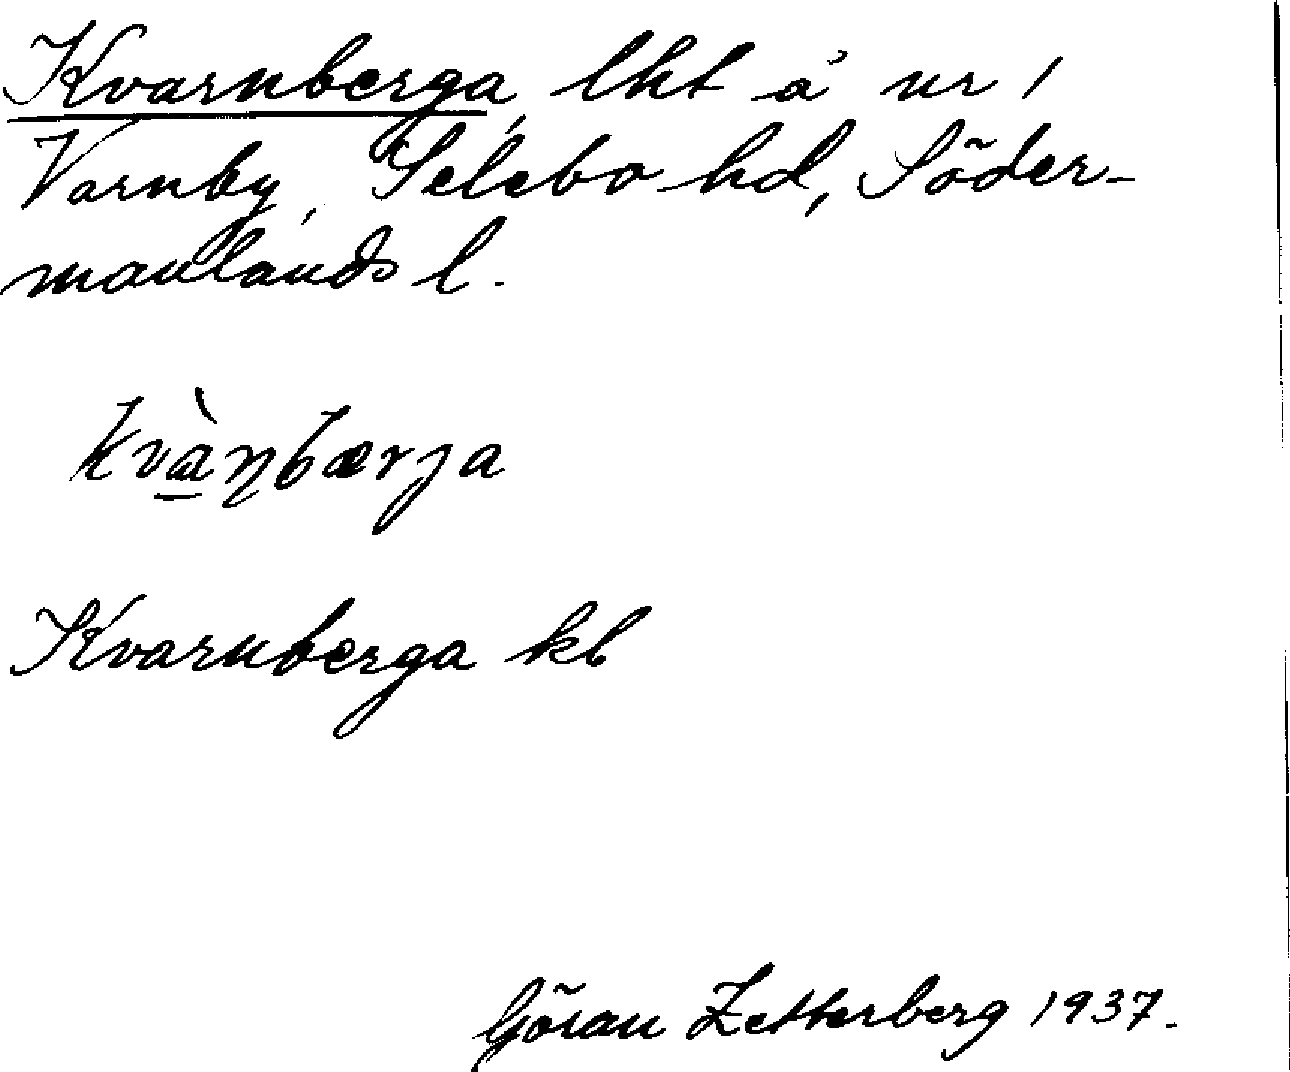 Kvarnberga, lht å nr 1
Varnby, Selebo hd, Söder-
manlands l.
kvàṇbærja
Kvarnberga kb
Göran Zetterberg 1937.